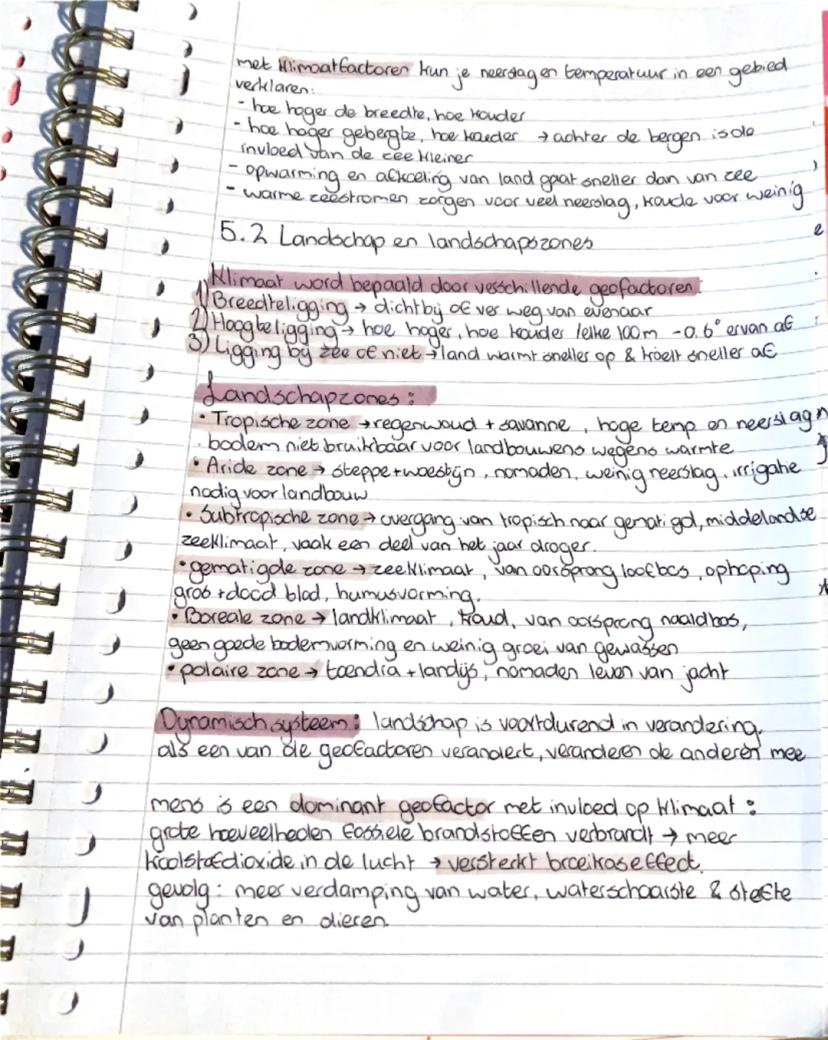 met klimaatfactoren kun je neerslag en temperatuur in een gebied
verklaren:
- hoe hoger de breedte, hoe kouder
- hoe hoger gebergte, hoe kouder → achter de bergen is de
invloed van de zee kleiner
- opwarming en afkoeling van land gaat sneller dan van zee
- warme zeestromen zorgen voor veel neerslag, koude voor weinig
5.2 Landschap en landschapszones
Klimaat word bepaald door verschillende geofactoren:
1) Breedteligging → dichtbij of ver weg van evenaar
2) Hoogteligging → hoe hoger, hoe kouder /elke 100m -0.6° ervan af
3) Ligging bij zee of niet → land warmt sneller op & koelt sneller af
Landschapzones:
• Tropische zone → regenwoud + savanne, hoge temp en neerslag
bodem niet bruikbaar voor landbouwens wegens warmte
• Aride zone → steppe + woestijn, nomaden, weinig neerslag, irrigatie
nodig voor landbouw
• Subtropische zone → overgang van tropisch naar gematigd, middelandse
zeeklimaat, vaak een deel van het jaar droger.
• gematigde zone → zeeklimaat, van oorsprong loofbos, ophoping
gras + dood blad, humusvorming.
• Boreale zone → landklimaat, koud, van oorsprong naaldbos,
geen goede bodemvorming en weinig groei van gewassen
• polaire zone → toendra + landijs, nomaden leven van jacht
Dynamisch systeem: landschap is voortdurend in verandering.
als een van die geofactoren verandert, veranderen de anderen mee
mens is een dominant geofactor met invloed op klimaat:
grote hoeveelheden fossiele brandstoffen verbrandt → meer
koolstofdioxide in de lucht → versterkt broeikaseffect.
gevolg: meer verdamping van water, waterschaarste & sterfte
van planten en dieren.